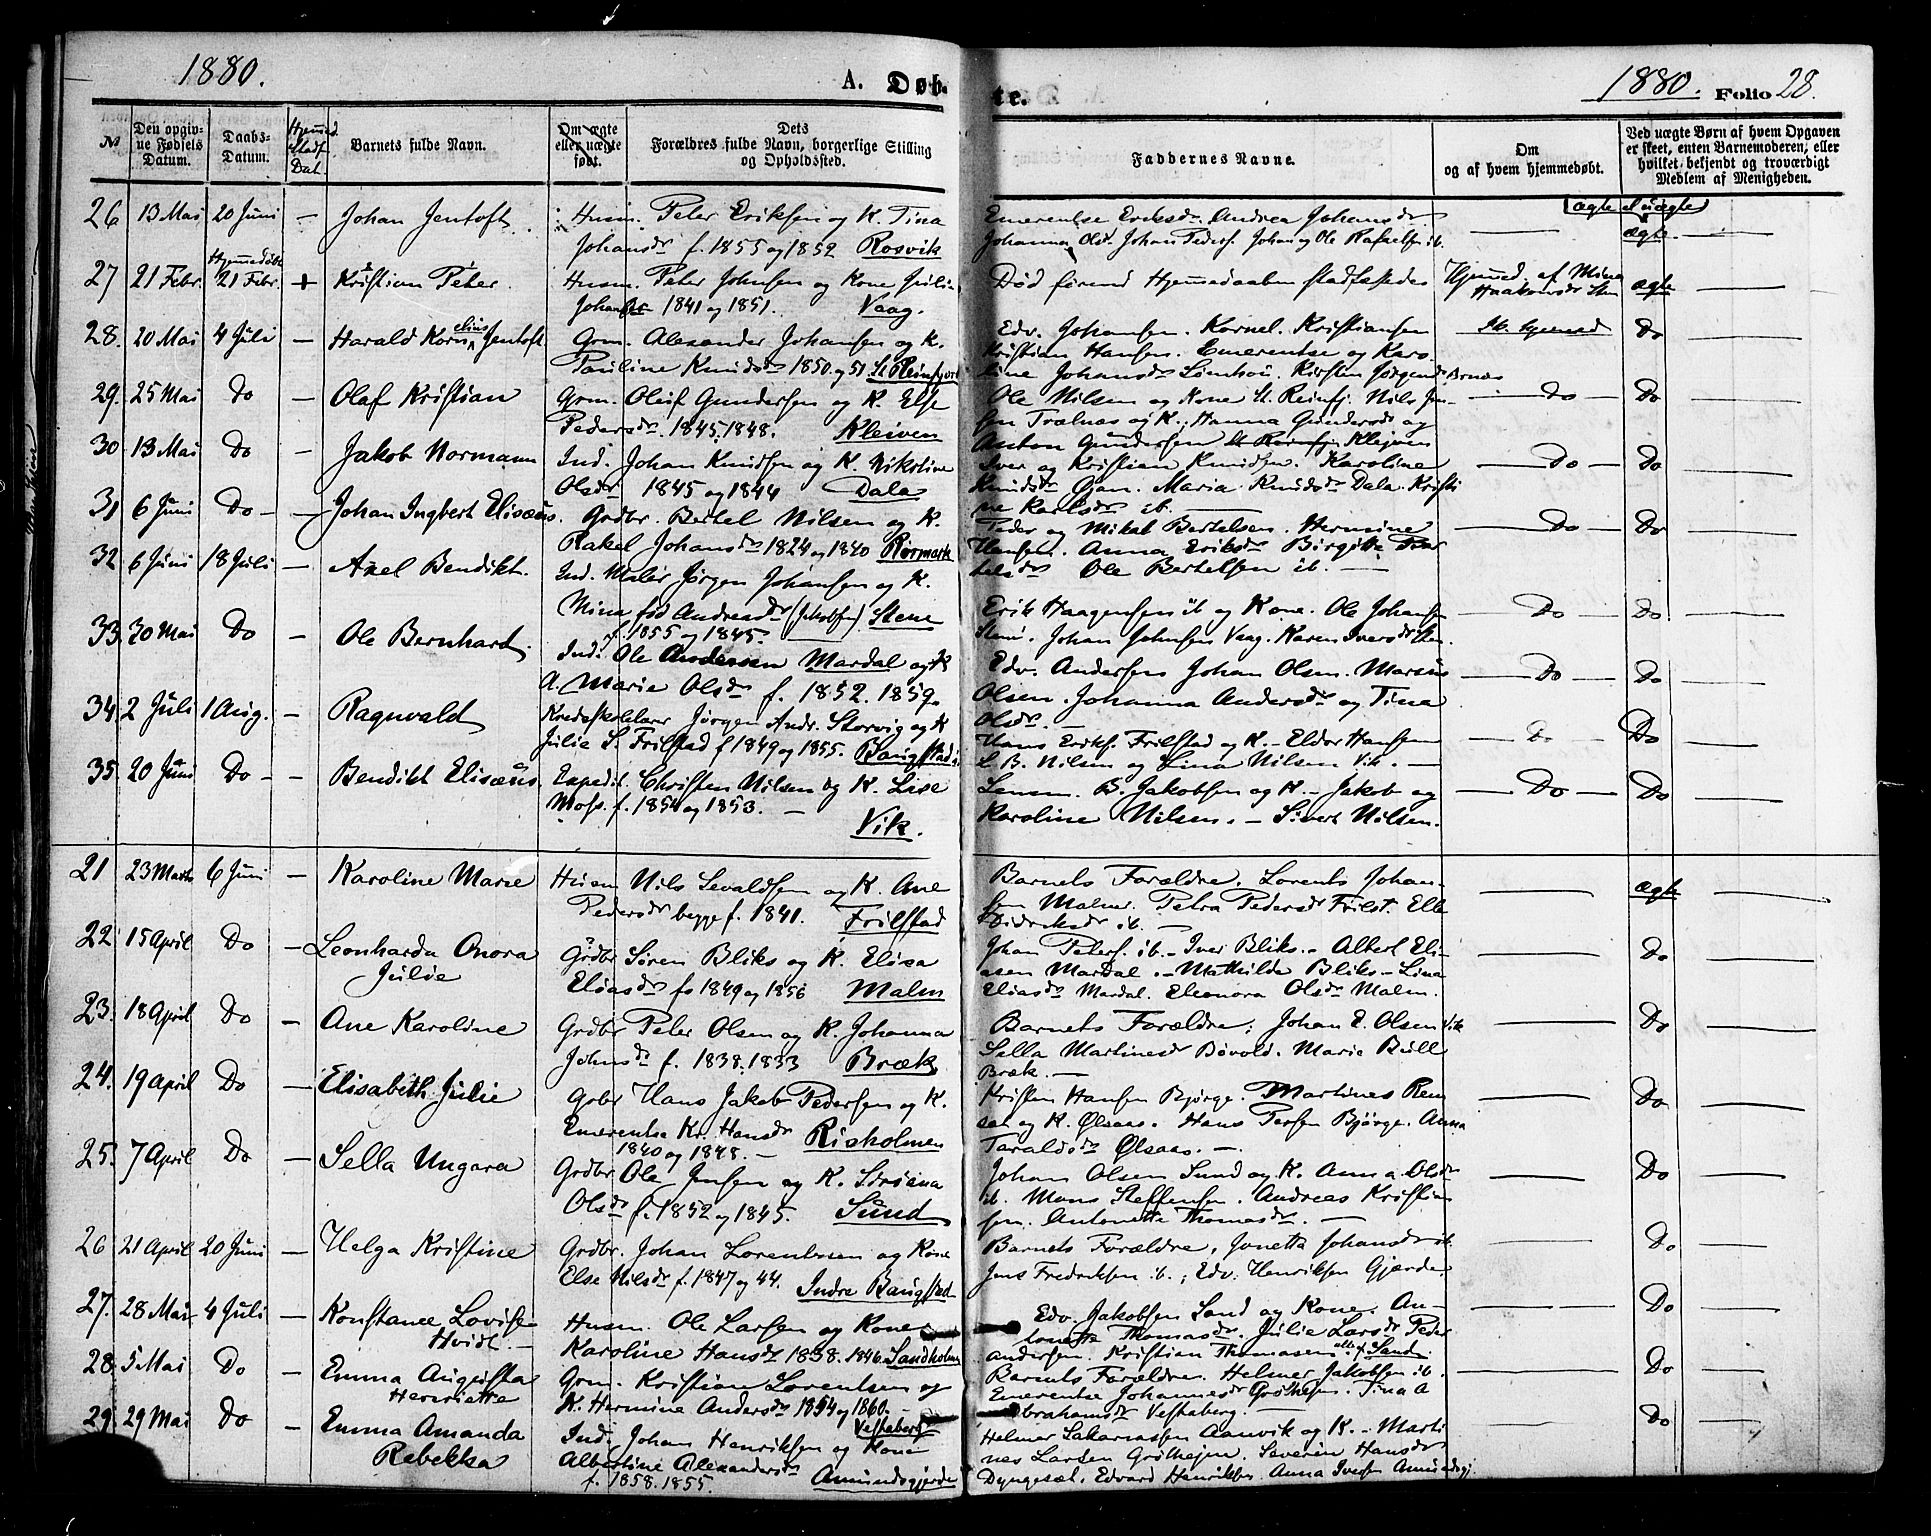 1880.
A. Døb-
te.
1880. Folio 28.
No
Den opgiv-
ne Fødsels
Datum.
Daabs-
Datum.
Hjemmed.
Stadf.
Dat.
Barnets fulde Navn.
Om ægte
eller uægte
født.
Dets
Forældres fulde Navn, borgerlige Stilling
og Opholdssted.
Faddernes Navne.
Om
og af hvem hjemmedøbt.
Ved uægte Børn af hvem Opgaven
er skeet, enten Barnemoderen, eller
hvilket bekjendt og troværdigt
Medlem af Menigheden.
ægte el. uægte
26 13 Mai 20 Juni — Johan Jentoft Husm. Peter Eriksen og K. Tina
Johansdr f. 1855 og 1852 Rosvik
Emerentse Eriksdr Andrea Johansdr
Johanna Olsd. Johan Peders. Johan og Ole Rafaelsen ib. — ægte —
27 21 Febr. Hjemmedøbt 21 Febr. + Kristian Peter. Husm. Peter Johnsen og Kone Julie
1841 og 1851. Vaag.
Død forend Hjemmedaaben stadfæstedes Hjemmed. af Mina
ægte —
28. 20 Mai 4 Juli — Harald Kornelius Jentoft Grm. Alexander Johansen og K.
Pauline Knudsdr 1850 og 51 St. Reinfjord
Edv. Johansen. Kornel. Kristiansen
Kristian Hansen. Emerentse og Karo-
line Johansdr Kirsten
Ik. hjemmed Do
29. 25 Mai Do — Olaf Kristian Grm. Oluf Gundersen og K. Else
Pedersdr. 1845. 1848. Kleiven
Ole Nilsen og Kone St. Reinfj. Nils Jen-
sen Trælnæs og K., Hanna Gundersdr og
Anton Gundersen — Do — Do
30 13 Mai Do — Jakob Normann Ind. Johan Knudsen og K. Nikoline
Olsdr 1845 og 1844 Dala
Iver og Kristian Knudsen. Karoline
Knudsdr Maria Knudsdr Dala. Kristi
ne Karlsdr ib. — Do — Do
31 6 Juni Do — — Johan Ingbert Elisæus. Grdbr. Bertel Nilsen og K.
Rakel Johansdr 1824 og 1840 Rørmark
Peder og Mikal Bertelsen. Hermine
Hansen. Anna Eriksdr Birgitte
Ole Bertelsen ib. — Do — Do
32 6 Juni 18 Juli — Axel Bendikt. Ind. Maler Jørgen Johansen og K.
Mina fød Andreasdr (Jakobsen) Stene
f. 1855 og 1845.
Erik Haagensen ib og Kone. Ole Johansen
Johan Johnsen Vaag. Karen Iversdr — Do — Do
33. 30 Mai Do — Ole Bernhard. Ind. Ole Andersen Mardal og K
A. Marie Olsdr f. 1852. 1859.
Edv. Andersen Johan Olsen. Marsus
Olsen. Johanna Andersdr og Tina
Olsdr. — Do — Do —
34 2 Juli 1 Aug. — Ragnvald Kredsskolelærer Jørgen Andr. Storvig og K
Julie S. Frilstad f 1849 og 1855. Bangstad i.
Hans Eriks. Frilstad og K. — Eldor Hansen
L. B. Nilsen og Lina Nilsen Vik. — — Do — Do —
35. 20 Juni Do — — Bendikt Elisæus. Expedit. Christen Nilsen og K. Lise
f. 1854 og 1853. —
Vik.
Lensm. B. Jakobsen og K. — Jakob og
Karoline Nilsen. — Sivert Nilsen. — Do — Do —
21 23 Marts 6 Juni — Karoline Marie Husm Nils Sevaldsen og K. Ane
Pedersdr begge f. 1841. Frilstad
Barnets Forældre. Lorents Johan-
sen Malm. Petra Pedersdr Frilst. Elle
Didriksdr ib. — — ægte —
22 15 April Do — Leonharda Onora
Julie
Grdbr Søren Bliks og K. Elisa
Eliasdr f. 1849 og 1856 Malm
Johan Peters. ib. — Iver Bliks. — Albert Eli-
asen Mardal. — Mathilde Bliks — Lina
Eliasdr Mardal. Eleonora Olsdr Malm. — Do —
23. 18 April Do — Ane Karoline Grdbr Peter Olsen og K. Johanna
Johnsdr f. 1838. 1833 Bræk
Barnets Forældre; Johan E. Olsen Vik
Sella Martinesdr Bøvold. Marie Bull
Bræk. — — Do —
24. 19 April Do — Elisabeth Julie Gdbr Hans Jakob Pedersen og K.
Emerentse Kr. Hansdr Risholmen
1840 og 1848. —
Kristen Hansen Bjørge. Martines Rem
og K. Ølsaas. Hans Persen Bjørge. Anna
Taraldsdr Ølsaas. — — Do —
25. 7 April Do — Sella Ungara Grdbr Ole Jensen og K.
Olsdr f. 1852 og 1845. Sund
Johan Olsen Sund og K. Anna Olsdr
ib. Mons Steffensen. Andreas Kristian
sen. Antonette Thomasdr. — — Do —
26 21 April 20 Juni — Helga Kristine Grdbr. Johan Lorentsen og Kone
Else Nilsdr f. 1847 og 44. Indre Bangstad
Barnets Forældre, Jonetta Johansdr ib.
Jens Fredriksen ib.; Edv. Henriksen Gjærde. — Do —
27. 28 Mai 4 Juli — Konstance Lovise
Hvidt. —
Husm. Ole Larsen og Kone
Karoline Hansdr 1838. 1846. Sandholm
Edv. Jakobsen Sand og Kone. An-
tonette Thomasdr. Julie Larsdr Peder
Andersen. Kristian Thomasen alle f. Sand. — Do —
28. 5 Mai Do — Emma Augusta
Henriette
Grm. Kristian Lorentsen og
K. Hermine Andersdr 1854 og 1860. —
Vestaberg
Barnets Forældre. Helmer Jakobsen ib.
Emerentse Johannesdr Grøthejen. Tina A
brahamsdr Vestaberg. — — Do —
29. 29 Mai Do — Emma Amanda
Rebekka
Ind. Johan Henriksen og Kone
Albertine Alexandersdr
f. 1858. 1855. Amundsgjerde
Helmer Sakariassen Aanvik og K. — Marti
nes Larsen Grøthejen. Severin Hansdr
Dyngesæt. Edvard Henriksen. Anna Amundsgj. — Do —